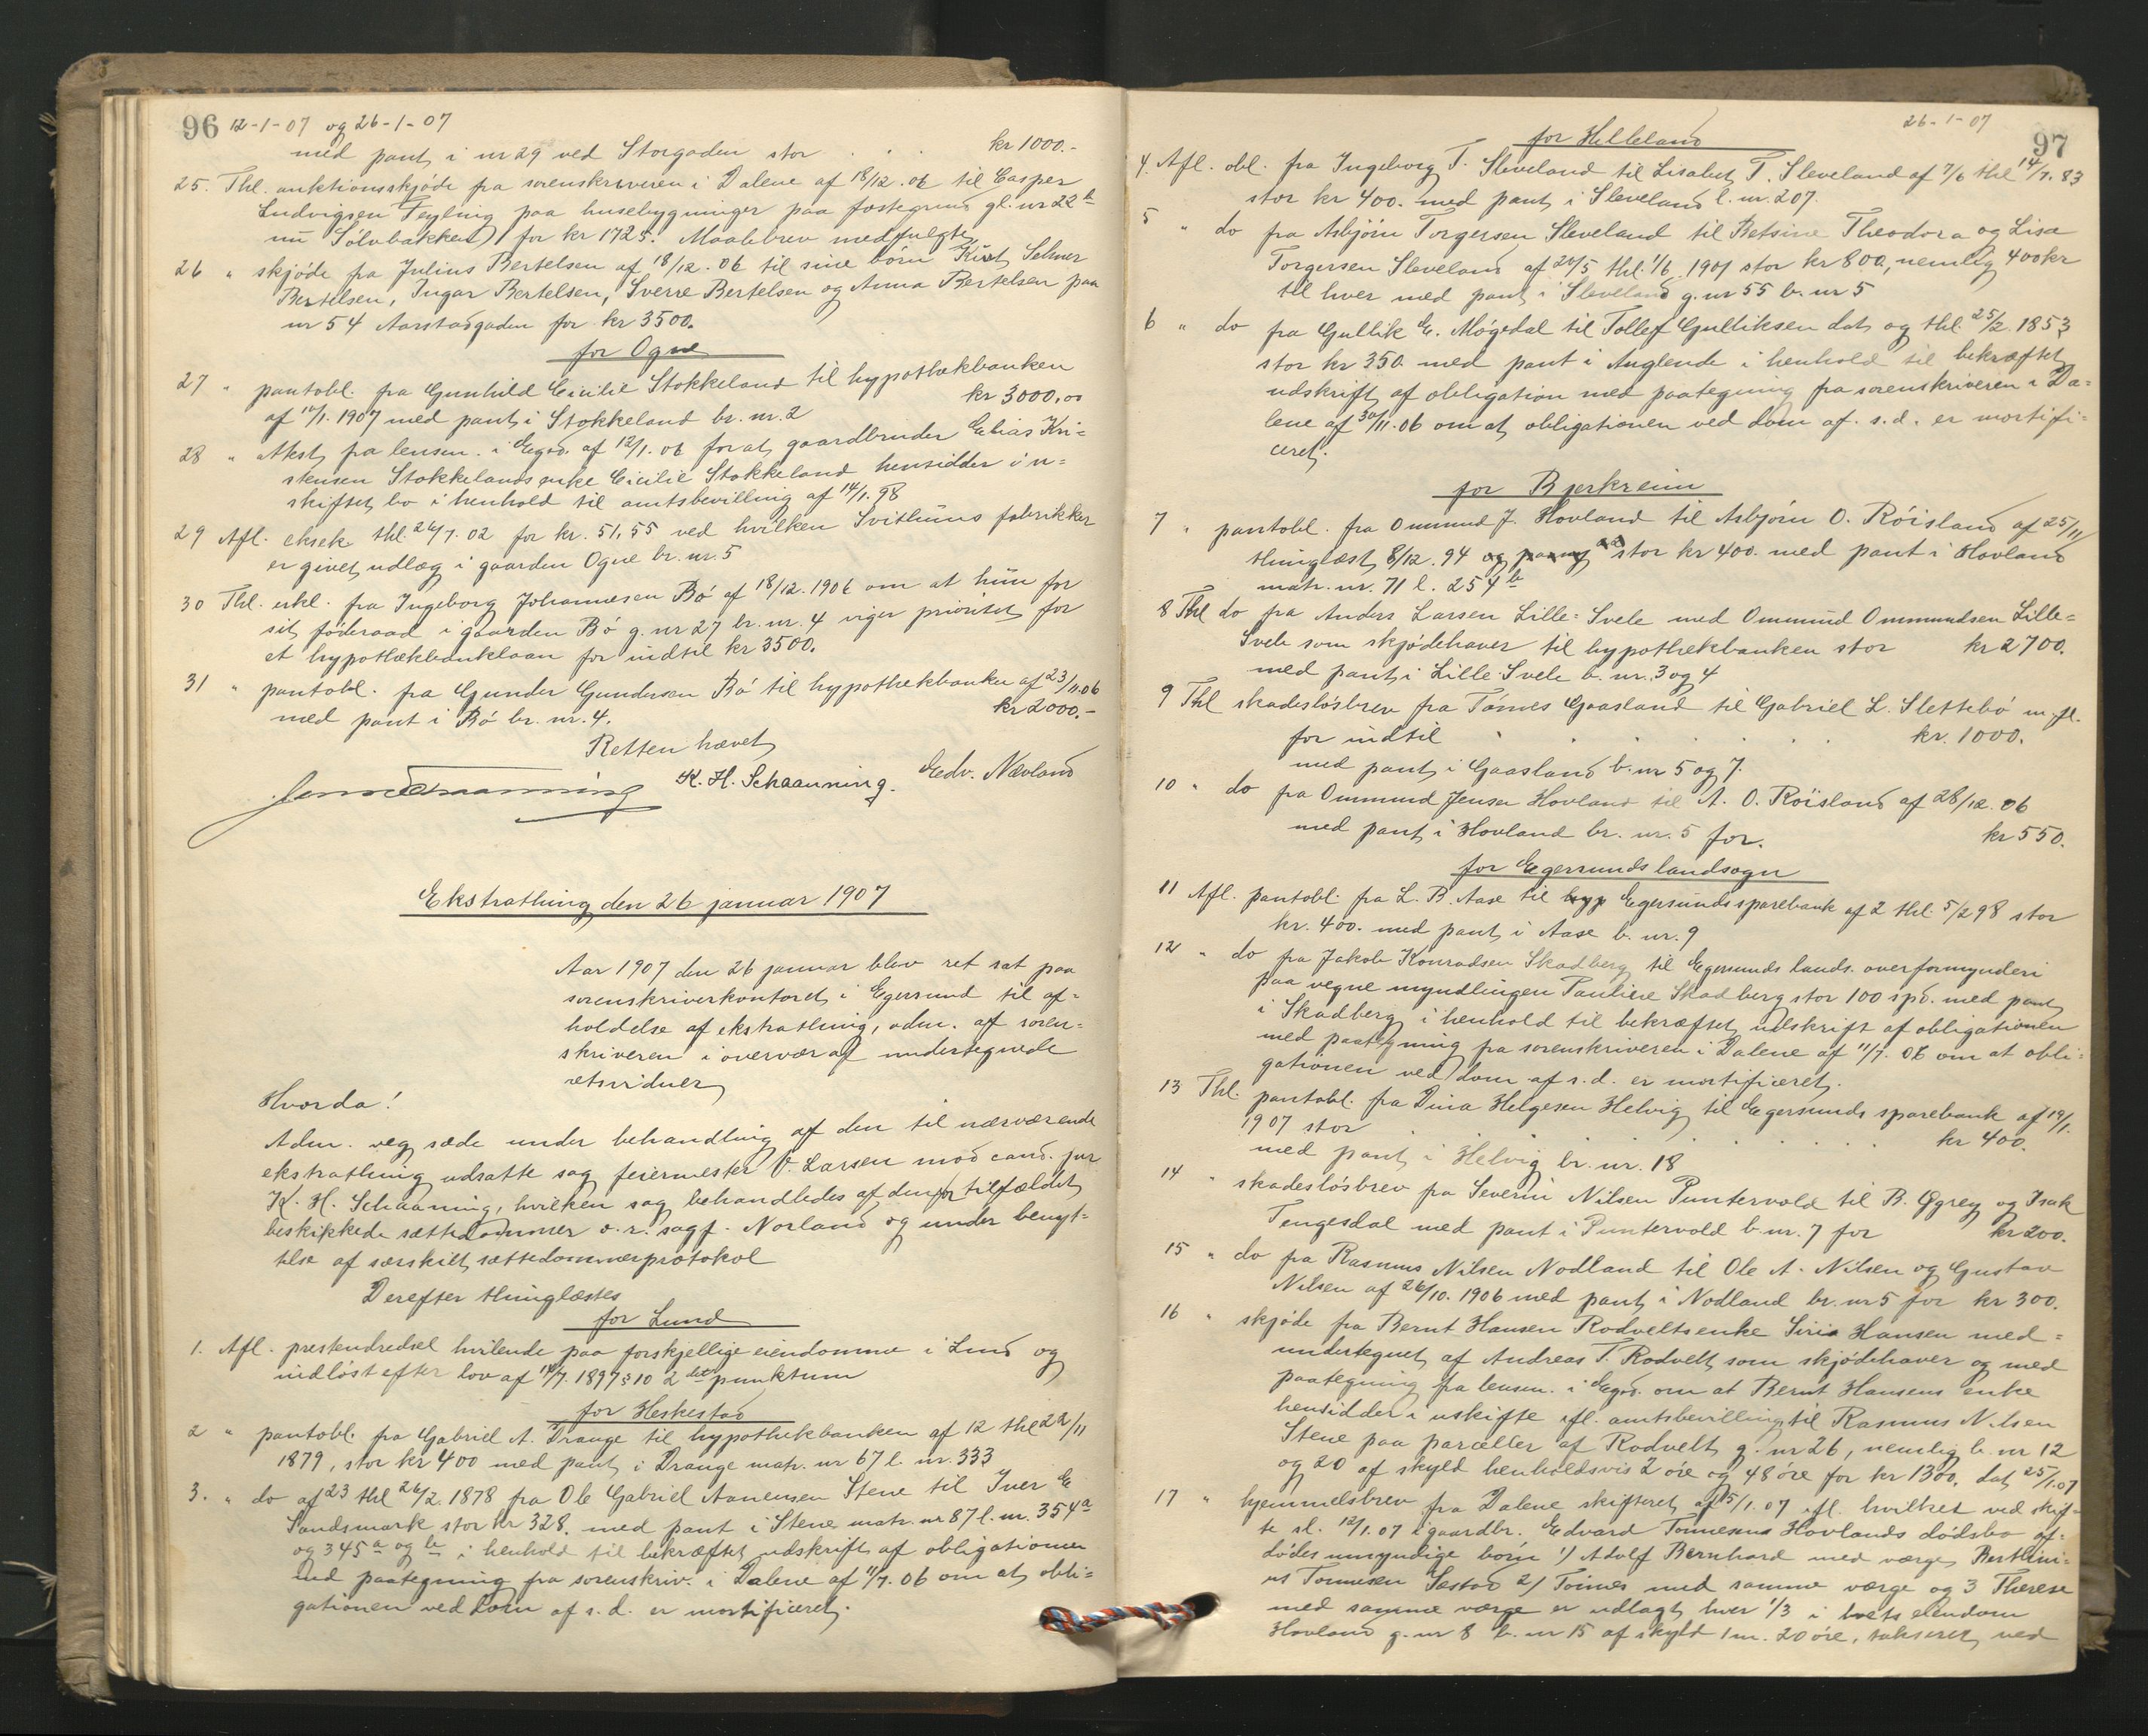 96 12-1-07 og 26-1-07
med pant i nr 29 ved Storgaden stor . . . kr 1000.-
25. Thl. auktionsskjøde fra sorenskriveren i Dalene af 18/12.06 til Casper
Ludvigsen Feyling paa husebygninger paa festegrund gl. nr 22 b
nu Sølvbakken) for kr 1725. Maalebrev medfulgte
26 " skjøde fra Julius Bertelsen af 18/12.06 til sine børn Kurt Selmer
Bertelsen, Ingar Bertelsen, Sverre Bertelsen og Anna Bertelsen paa
nr 54 Aarstadgaden for kr 3500.
for Ogne
27 " pantobl. fra Gunhild Cicilie Stokkeland til hypothekbanken
af 10/1.1907 med pant i Stokkeland br. nr. 2 kr 3000,00
28 " attest fra lensm. i Egd. af 12/1.06 for at gaardbruder Elias Kri=
stensen Stokkelands enke Cicilie Stokkeland hensidder i u=
skiftet bo i henhold til amtsbevilling af 14/1.98
29 Afl. eksek. thl. 26/7.02 for kr. 51,55 ved hvilken Svithuns fabrikker
er givet udlæg i gaarden Ogne br. nr. 5
30 Thl. erkl. fra Ingeborg Johannesen Bø af 18/12.1906 om at hun for
sit føderaad i gaarden Bø g. nr 27 br. nr. 4 viger prioritet for
et hypothekbanklaan for indtil kr 3500.
31 " pantobl. fra Gunder Gundersen Bø til hypothekbanken af 23/11.06
med pant i Bø br. nr. 4. kr 2000.-
Retten hævet
K. H. Schaanning. Edv. Nævland
Ekstrathing den 26 januar 1907
Aar 1907 den 26 januar blev ret sat paa
sorenskriverkontoret i Egersund til af=
holdelse af ekstrathing, adm. af soren=
skriveren i overvær af undertegnede
retsvidner
Hvorda!
Adm. veg sæde under behandling af den til nærværende
ekstrathing udsatte sag feiermester V. Larsen mod cand. jur
K. H. Schaanning, hvilken sag behandledes af den for tilfældet
beskikkede sættedommer o. r. sagf. Norland og under benyt=
telse af særskilt sættedommerprotokol
Derefter thinglæstes
for Lund
1. Afl. prestendredsel hvilende paa forskjellige eiendomme i Lund og
indløst efter lov af 14/7.1897 § 10 2 det punktum
for Heskestad
2 " pantobl. fra Gabriel A. Drange til hypothekbanken af 12 thl 22/11
1879, stor kr 400 med pant i Drange matr. nr 67 l. nr. 333
3. " do af 23 thl 26/2.1878 fra Ole Gabriel Aanensen Stene til Iver E
Sandsmark stor kr 328. med pant i Stene matr. nr 87 l. nr. 354 a
og 345 a og b i henhold til bekræftet udskrift af obligationen
med paategning fra sorenskriv. i Dalene af 11/7.06 om at obli=
gationen ved dom af s. d. er mortificeret.
26-1-07
97
for Helleland
4. Afl. obl. fra Ingeborg T. Sleveland til Lisabet T. Sleveland af 7/6 thl 14/7.83
stor kr 400. med pant i Sleveland l. nr. 207.
5 " do fra Asbjørn Torgersen Sleveland til Betsine Theodora og Lisa
Torgersen Sleveland af 20/5 thl. 1/6 1901 stor kr 800, nemlig 400 kr
til hver med pant i Sleveland g. nr 55 b. nr 5
6 " do fra Gullik E. Møgedal til Tollef Gulliksen dat. og thl. 25/2.1853
stor kr 350 med pant i Auglende i henhold til bekræftet
udskrift af obligation med paategning fra sorenskriveren i Da=
lene af 30/11.06 om at obligationen ved dom af s. d. er mortifi=
ceret.
for Bjerkreim
7 " pantobl. fra Ommund J. Hovland til Asbjørn O. Røisland af 25/11
thinglæst 8/12.94 stor kr 400. med pant i Hovland
matr. nr. 71 l. 254 b
8 Thl do fra Anders Larsen Lille=Svele med Ommund Ommundsen Lille=
Svele som skjødehaver til hypothekbanken stor kr 2700.
med pant i Lille Svele b. nr. 3 og 4
9 Thl skadesløsbrev fra Tønnes Gaasland til Gabriel L. Slettebø m. fl.
for indtil . . . . . kr. 1000.
med pant i Gaasland b. nr 5 og 7.
10 " do fra Ommund Jensen Hovland til A. O. Røisland af 28/12.06
med pant i Hovland br. nr. 5 for. kr 550.
for Egersunds landsogn
11 Afl. pantobl. fra L. B. Aase til hyp Egersunds sparebank af 2 thl. 5/2 98 stor
kr. 400. med pant i Aase b. nr. 9
12 " do fra Jakob Konradsen Skadberg til Egersunds lands. overformynderi
paa vegne myndlingen Pauline Skadberg stor 100 spd. med pant
i Skadberg i henhold til bekræftet udskrift af obligationen
med paategning fra sorenskriveren i Dalene af 11/7.06 om at obli=
gationen ved dom af s. d. er mortificeret.
13 Thl. pantobl. fra Dina Helgesen Helvig til Egersunds sparebank af 19/1.
1907 stor . . . . . kr 400.
med pant i Helvig br. nr. 18
14 " skadesløsbrev fra Severin Nilsen Puntervold til B. Øgrey og Isak
Tengesdal med pant i Puntervold b. nr. 7 for kr 200.
15 " do fra Rasmus Nilsen Nodland til Ole A. Nilsen og Gustav
Nilsen af 26/10.1906 med pant i Nodland br. nr 5 for kr 300.
16 " skjøde fra Bernt Hansen Rodvelts enke Siria Hansen med=
undertegnet af Andreas T. Rodvelt som skjødehaver og med
paategning fra lensm. i Egd. om at Bernt Hansens enke
hensidder i uskifte ifl. amtsbevilling til Rasmus Nilsen
Stene paa parceller af Rodvelt g. nr 26, nemlig b. nr 12
og 20 af skyld henholdsvis 2 øre og 48 øre for kr 1300. dat 25/1.07
17 " hjemmelsbrev fra Dalene skifteret af 15/1.07 ifl. hvilket ved skif=
te sl. 12/1.07 i gaardbr. Edvard Tønnesens Hovlands dødsbo af=
dødes umyndige børn 1) Adolf Bernhard med værge Berthini=
us Tønnesen Sæstad 2/ Tønnes med samme værge og 3 Therese
med samme værge er udlagt hver 1/3 i boets eiendom
Hovland g. nr 8 b. nr 15 af skyld 1 m. 20 øre, takseret ved